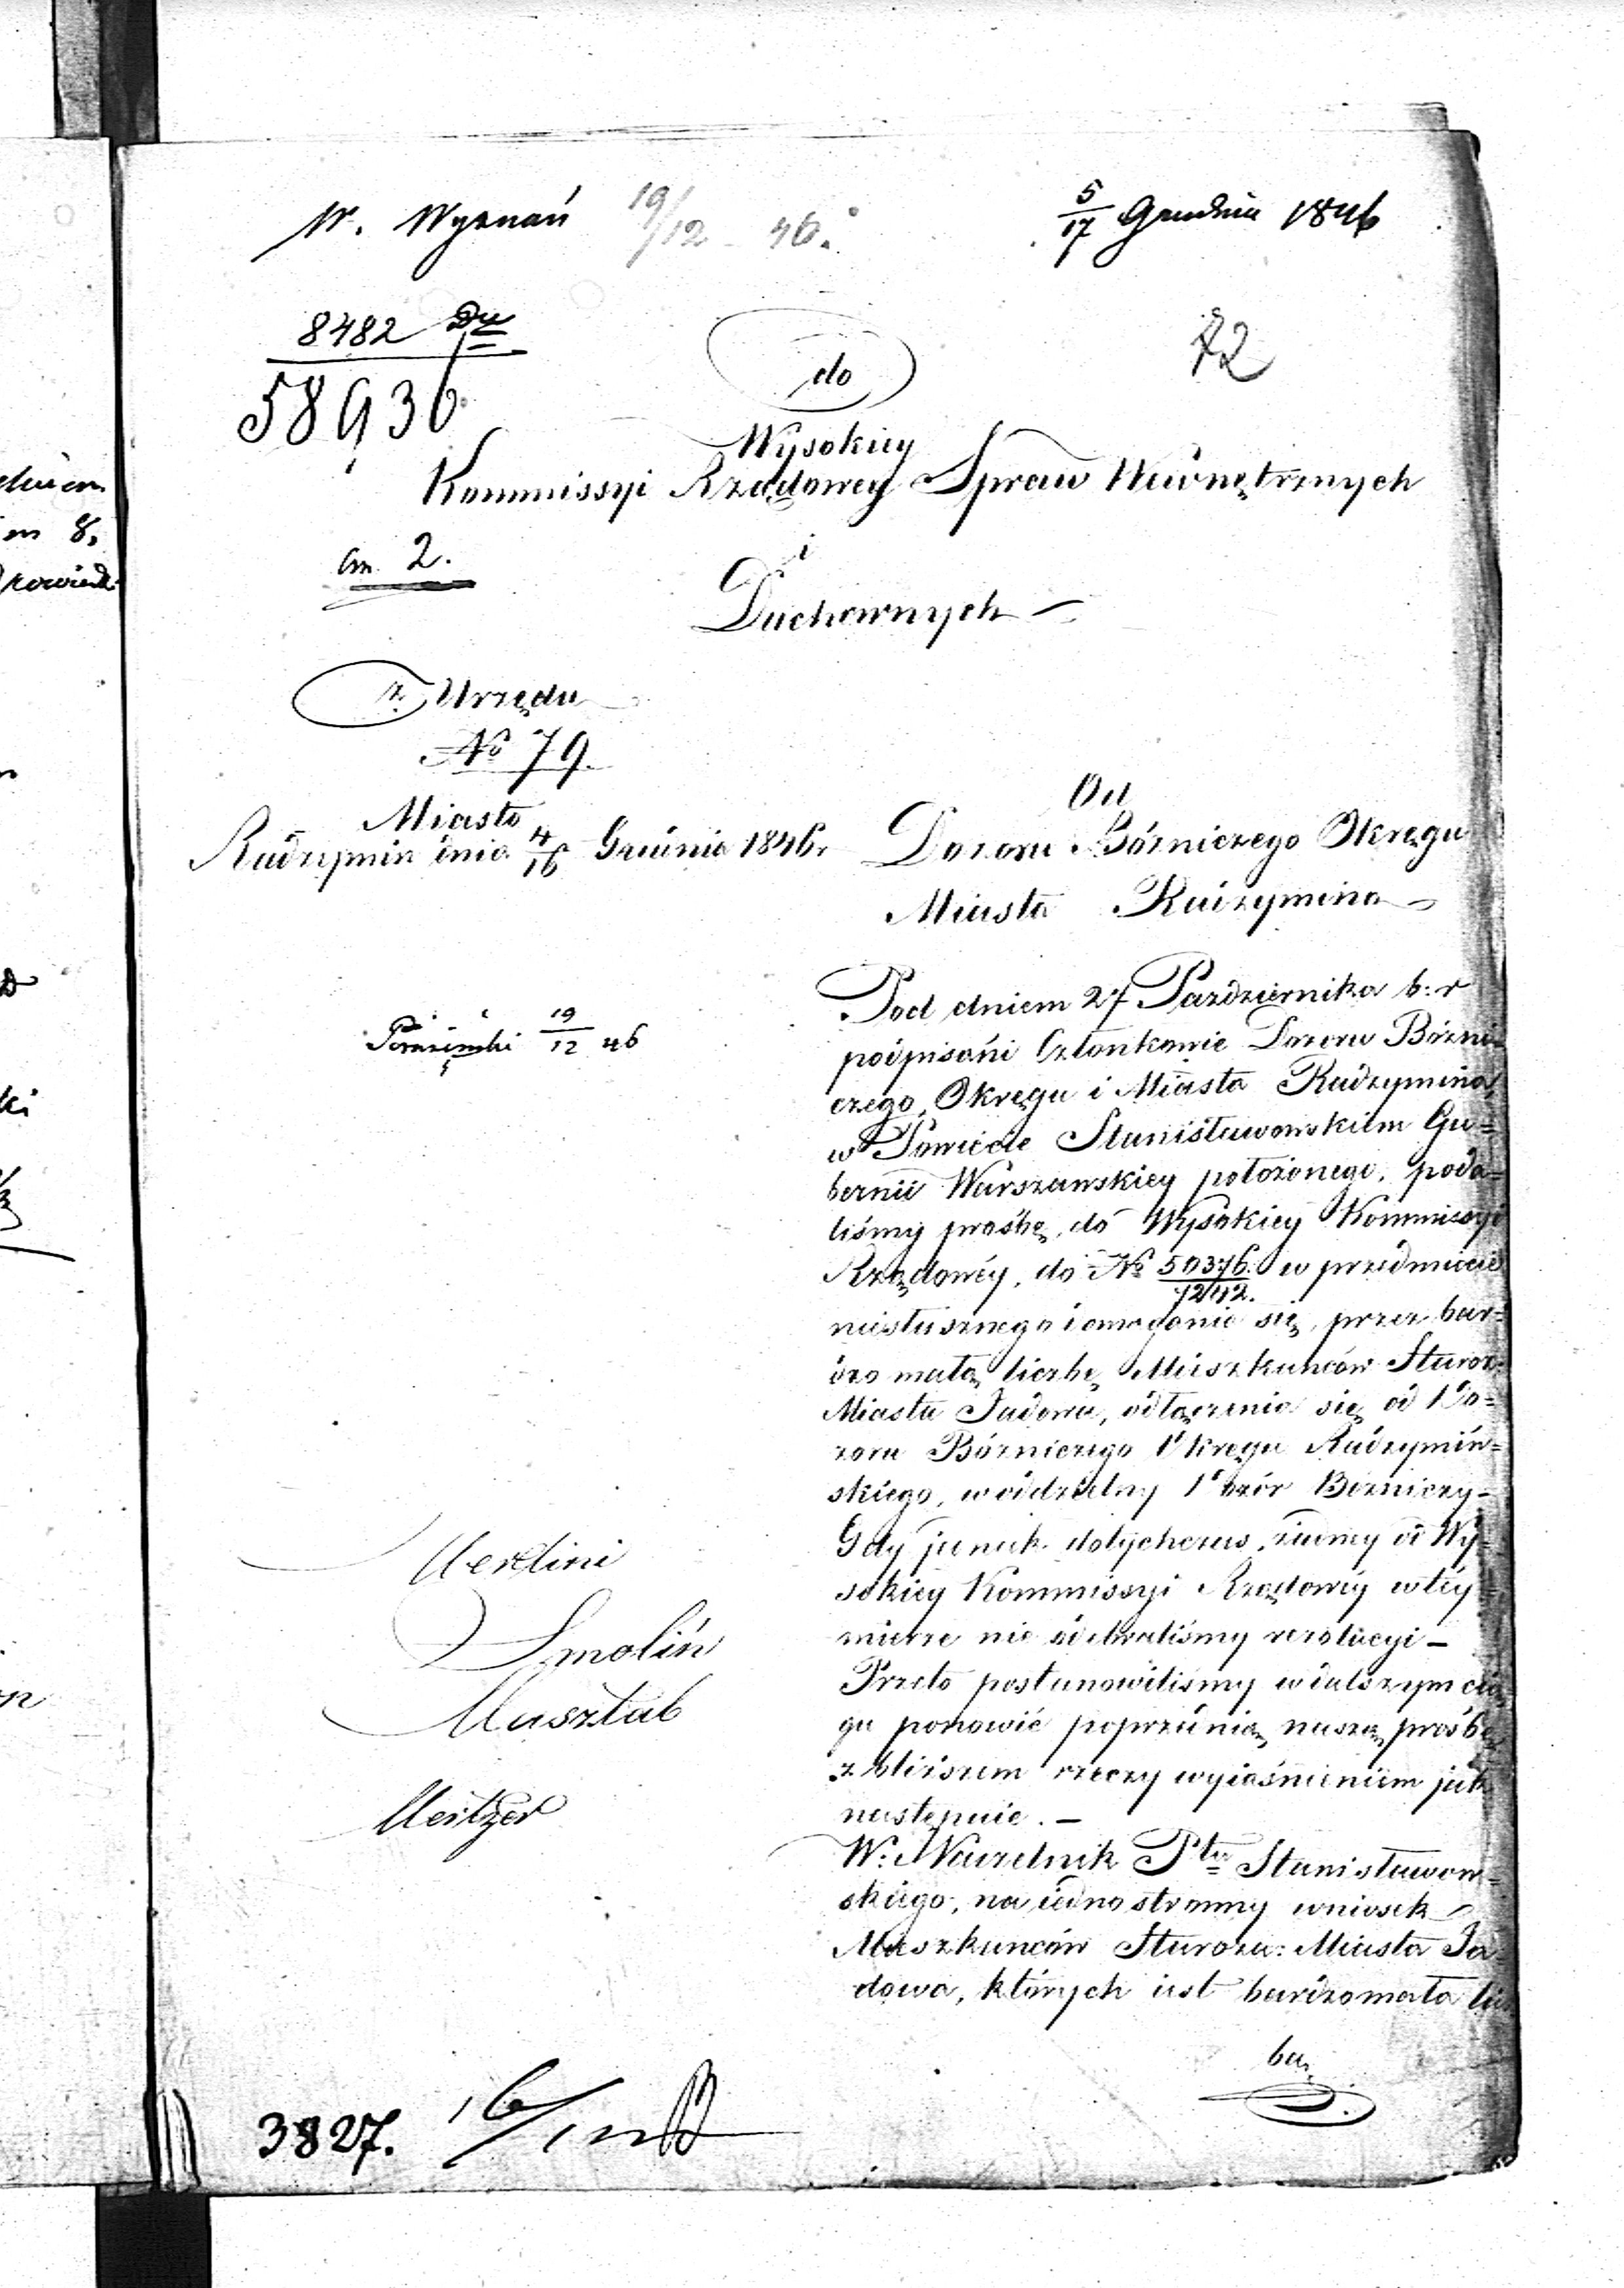 W. Wyznań 19/12 46. 5/17 Grudnia 1846
8482
58936
72
do
Wysokiey
Kommissyi Rządowey Spraw Wewnętrznych
i
Duchownych
an. 2.
z Urzędu
No 79.
Miasto
Radzymin dnia 4/16 Grudnia 1846.
Od
Dozoru Bóżniczego Okręgu
Miasta Radzymina
19/12 46
Pod dniem 27 Pazdziernika b: r
podpisani Członkowie Dozoru Bóżni=
czego, Okręgu i Miasta Radzymina,
w Powiecie Stanisławowskiem Gu=
bernii Warszawskiey położonego, poda=
liśmy prośbę, do Wysokiey Kommissyi
Rządowéy, do No 50376/7242. w przedmiocie
niesłusznego domagania się, przez bar=
dzo małą liczbę Mieszkańców Staroz:
Miasta Jadowa, odłączenia się od Do=
zoru Bóżniczego Okręgu Radzymiń=
skiego, w oddzielny Dozór Bożniczy –
Gdy jednak dotychczas, żadney od Wy=
sokiey Kommissyi Rządowéy w téy
mierze nie odebraliśmy rezolucyi –
Przeto postanowiliśmy w dalszym cią
gu ponowić poprzednią naszą prośbę
z bliższem rzeczy wyiaśnieniem jak
następuie. –
W: Naczelnik Ptu Stanisławow=
skiego, na iedno stronny wniosek
Mieszkańców Staroza: Miasta Ja=
dowa, których iest bardzo mała licz
ba,
Merlini
Smolin
Musztab
Meitzer
3827.